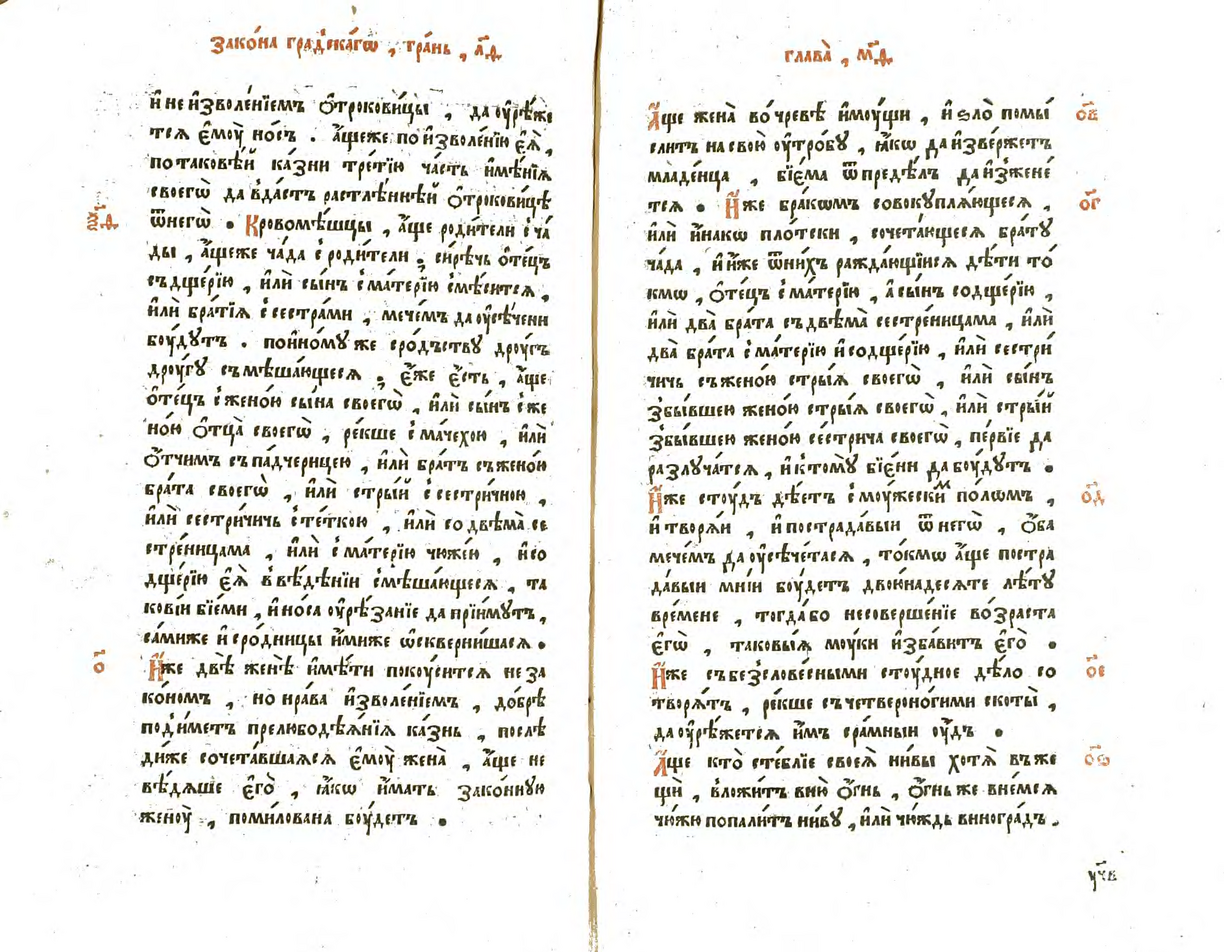 Зако́на градскагѡ , гра́нь , л҃д
и҆ не и҆зволе́нїемъ ѻ҆трокови́цы , да ᲂу҆рѣ́же
тсѧ є҆мꙋ̀ но́съ . а҆́щеже по и҆зволе́нїю є҆ѧ̀ ,
по таковѣ́й ка́зни тре́тїю ча́сть и҆мѣ́нїѧ
своегѡ̀ да вда́стъ растлѣ́ннѣй ѻ҆трокови́цѣ
ѿнегѡ̀ . Кровомѣ́шцы , а҆́ще роди́тели с̾ ча́
ды , а҆́щеже ча́да с̾ роди́тели , си́рѣчь ѻ҆те́цъ
съ дще́рїю , и҆лѝ сы́нъ с̾ ма́терїю смѣ́ситсѧ ,
и҆лѝ бра́тїѧ с̾ сестра́ми , мече́мъ да ᲂу҆сѣ́чени
бꙋ́дꙋтъ . по и҆но́мꙋ же сро́дъствꙋ дрꙋ́гъ
дрꙋ́гꙋ съмѣша́ющесѧ , є҆́же є҆́сть , а҆́ще
ѻ҆те́цъ с̾ жено́ю сы́на своегѡ̀ , и҆лѝ сы́нъ с̾ же
но́ю ѻ҆тца̀ своегѡ̀ , ре́кше с̾ ма́чехою , и҆лѝ
ѻ҆́тчимъ съ па́дчерицею , и҆лѝ бра́тъ съ жено́ю
бра́та своегѡ̀ , и҆лѝ стры́й с̾ сестри́чною ,
и҆лѝ сестри́чичь с̾ те́ткою , и҆лѝ со двѣма̀ се
стре́ницама , и҆лѝ с̾ ма́терїю чюже́ю , и҆ со
дще́рїю є҆ѧ̀ в̾ вѣ́дѣнїи смѣша́ющесѧ , та
ковíи бїе́ми , и҆ но́са ᲂу҆рѣ́занїе да прїи́мꙋтъ ,
са́миже и҆ сро́дницы и҆́миже ѡ҆скверни́шасѧ .
о҃
И҆́же двѣ̀ женѣ̀ и҆мѣ́ти покꙋ́ситсѧ не за
ко́номъ , но нра́ва и҆зволе́нїемъ , до́брѣ
под̾и́метъ прелюбодѣѧ́нїѧ ка́знь , послѣ
ди́же сочета́вшаѧсѧ є҆мꙋ̀ жена̀ , а҆́ще не
вѣ́дѧше є҆го̀ , ꙗ҆́кѡ и҆́мать зако́ннꙋю
женꙋ̀ , поми́лована бꙋ́детъ .
глава̀ , м҃д
А҆́ще жена̀ во чре́вѣ и҆мꙋ́щи , и҆ ѕло̀ помы́
слитъ на свою̀ ᲂу҆тро́бꙋ , ꙗ҆́кѡ да и҆зве́ржетъ
младе́нца , бїе́ма ѿ предѣ́лъ да и҆зжене́
тсѧ . И҆́же бра́комъ совокꙋплѧ́ющесѧ ,
и҆лѝ и҆на́кѡ пло́тски , сочета́ющесѧ бра́тꙋ
ча́да , и҆ и҆́же ѿни́хъ ражда́ющїисѧ дѣ́ти то́
кмѡ , ѻ҆те́цъ с̾ ма́терїю , а҆ сы́нъ со дще́рїю ,
и҆лѝ два̀ бра́та съ двѣма̀ сестре́ницама , и҆лѝ
два̀ бра́та с̾ ма́терїю и҆ со дще́рїю , и҆лѝ сестри́
чичь съ жено́ю стры́ѧ своегѡ̀ , и҆лѝ сы́нъ
з̾ бы́вшею жено́ю стры́ѧ своегѡ̀ , и҆лѝ стры́й
з̾ бы́вшею жено́ю се́стрича своегѡ̀ , пе́рвїе да
разлꙋча́тсѧ , и҆ к̾ томꙋ̀ бїе́ни да бꙋ́дꙋтъ .
И҆́же стꙋ́дъ дѣ́етъ с̾ мꙋ́жескимъ по́ломъ ,
и҆ творѧ́и , и҆ пострада́выи ѿ негѡ̀ , ѻ҆́ба
мече́мъ да ᲂу҆сѣче́тасѧ , то́кмѡ а҆́ще постра
да́выи мнíи бꙋ́детъ двоюна́десѧте лѣ́тꙋ
вре́мене , тогда́ бо несоверше́нїе во́зраста
є҆гѡ̀ , таковы́ѧ мꙋ́ки и҆зба́витъ є҆го̀ .
И҆́же съ безслове́сными стꙋ́дное дѣ́ло со
творѧ́тъ , ре́кше съ четвероно́гими скоты̀ ,
да ᲂу҆рѣ́жетсѧ и҆́мъ сра́мныи ᲂу҆́дъ .
А҆́ще кто̀ сте́блїе своеѧ̀ ни́вы хотѧ̀ въ же
щѝ , вложи́тъ в̾ ню̀ ѻ҆́гнь , ѻ҆́гнь же вне́мсѧ
чю́жю попали́тъ ни́вꙋ , и҆лѝ чю́ждь виногра́дъ .
о҃в
о҃г
о҃д
о҃е
о҃ѕ
ꙋ҃чв